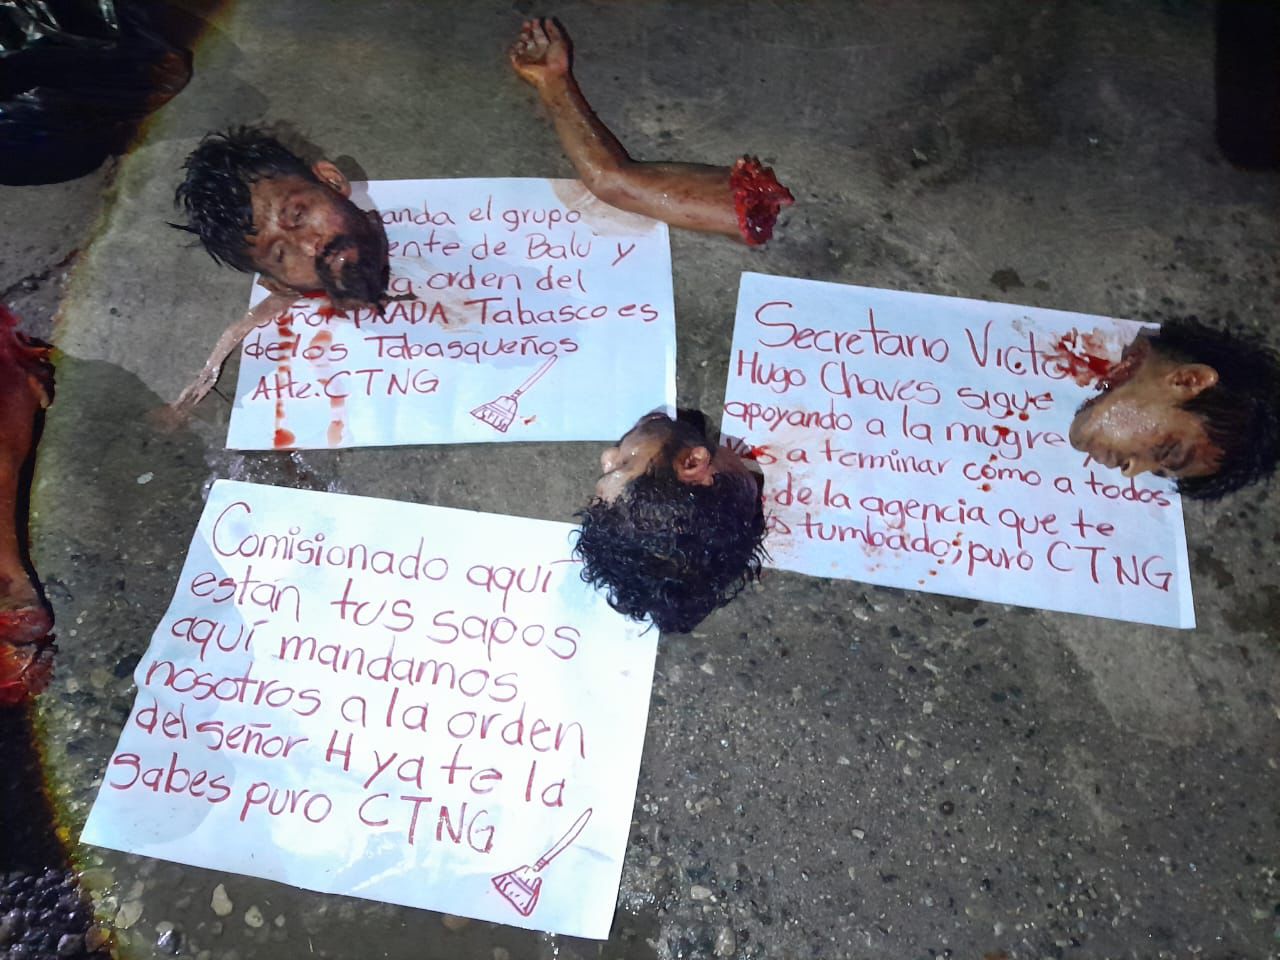 manda el grupo
de Balu y
la orden del
señor PRADA Tabasco es
de los Tabasqueños
Atte. CTNG
Secretario Victor
Hugo Chaves sigue
apoyando a la mugre
Vas a terminar cómo a todos
de la agencia que te
tumbado; puro CTNG
Comisionado aquí
están tus sapos
aquí mandamos
nosotros a la orden
del señor H ya te la
sabes puro CTNG